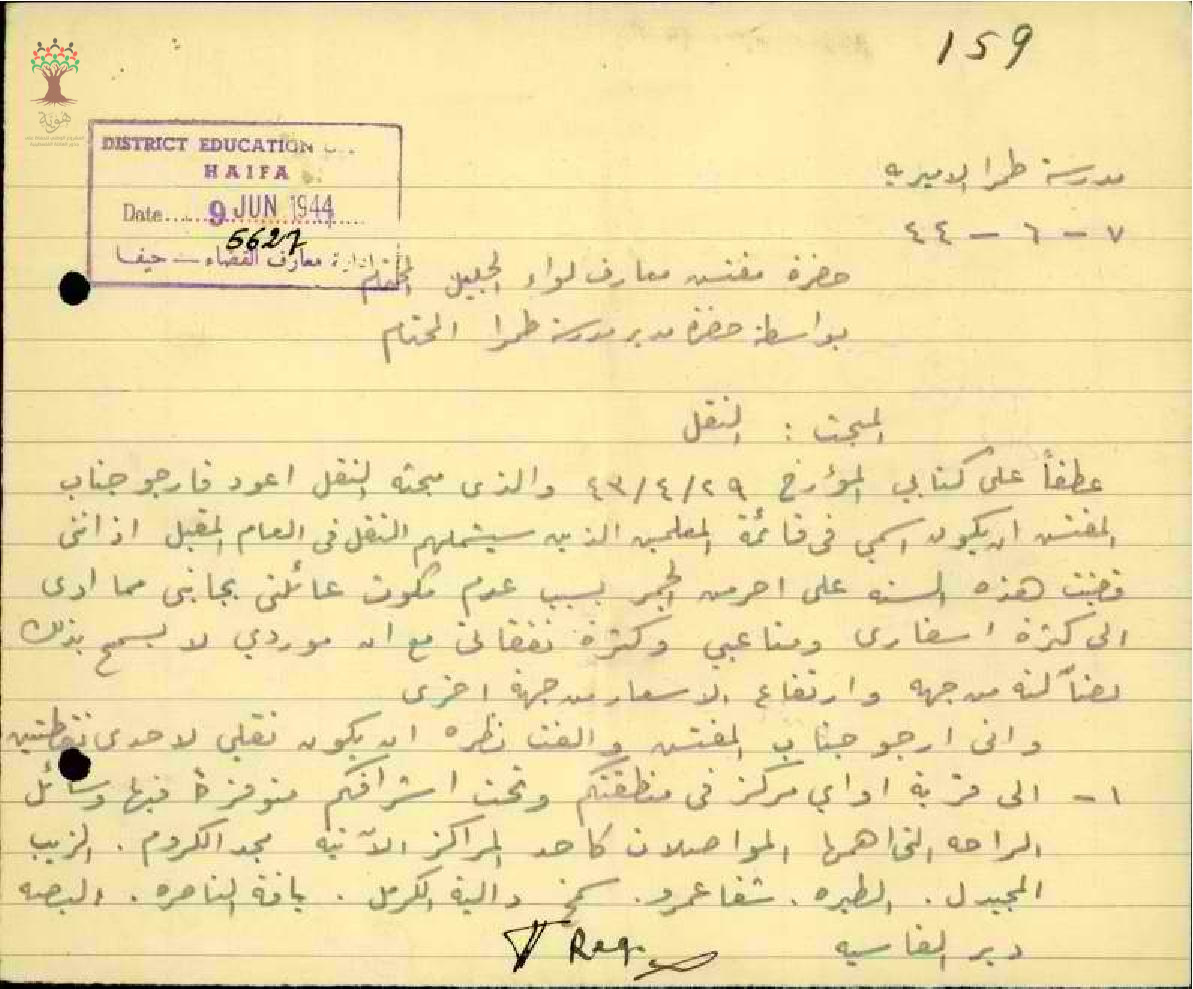 159
هوية
DISTRICT EDUCATION
HAIFA
Date..... 9 JUN 1944
5627
ادارة معارف القضاء — حيفا
مدرسة طمرا الاميريه
٧ - ٦ - ٤٤
حضرة مفتش معارف لواء الجليل المحترم
بواسطة حضرة مدير مدرسة طمرا المحترم
المبحث : النقل
عطفاً على كتابي المؤرخ ٤٣/٤/٢٩ والذى مبحثه النقل اعود فارجو جناب
المفتش ان يكون اسمي فى قائمة المعلمين الذين سيشملهم النقل فى العام المقبل اذ اننى
قضيت هذه السنه على احر من الجمر بسبب عدم وجود عائلتى بجانبى مما ادى
الى كثرة اسفارى ومتاعبي وكثرة نفقاتى مع ان موردي لا يسمح بذلك
لضآلته من جهه وارتفاع الاسعار من جهة اخرى
وانى ارجو جناب المفتش والفت نظره ان يكون نقلي لاحدى نقطتين
١- الى قرية او اي مركز فى منطقتكم وتحت اشرافكم متوفرة فيها وسائل
الراحه التى اهمها المواصلات كاحد المراكز الآتيه مجد الكروم . الزيب
المجيدل . الطيره . شفا عمرو . سمخ دالية الكرمل . يافة الناصره . البصه
دير القاسيه
Reg.